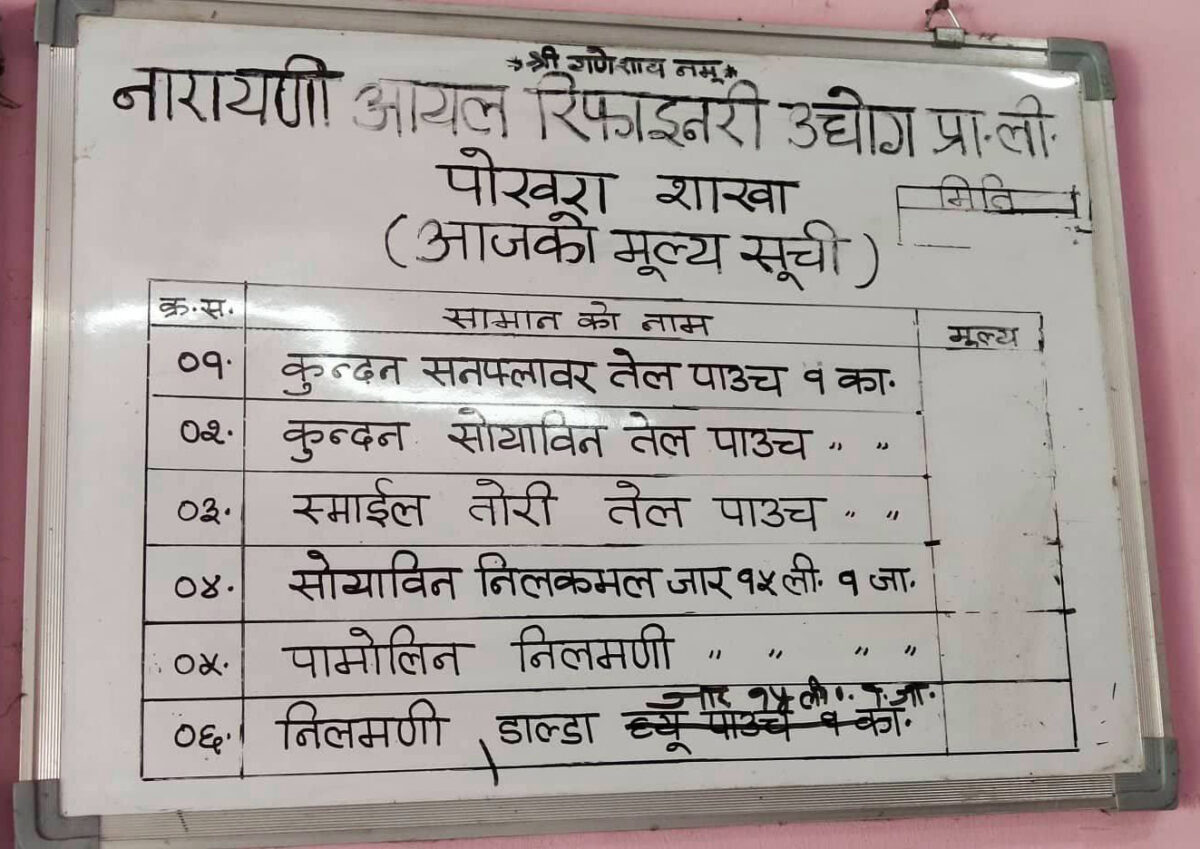 *श्री गणेशाय नमः*
नारायणी आयल रिफाइनरी उद्योग प्रा.ली.
पोखरा शाखा
मिति
(आजको मूल्य सूची)
क्र.स. सामान को नाम मूल्य
०१. कुन्दन सनफ्लावर तेल पाउच १ का.
०२. कुन्दन सोयाविन तेल पाउच " "
०३. स्माईल तोरी तेल पाउच " "
०४. सोयाविन निलकमल जार १५ ली. १ जा.
०५. पामोलिन निलमणी " " " "
जार १५ ली. १ जा.
०६. निलमणी डाल्डा घ्यू पाउच १ का.